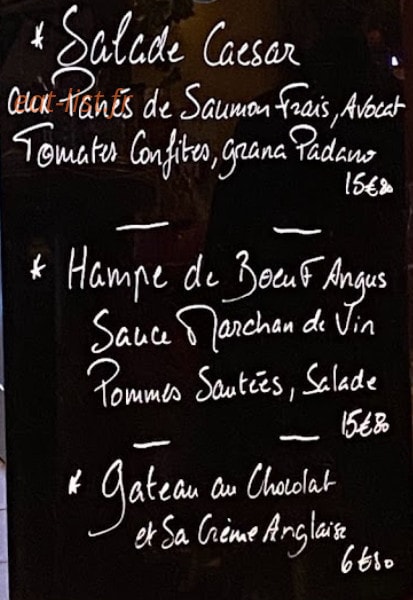 * Salade Caesar
aux Panés de Saumon Frais, Avocat
Tomates Confites, grana Padano
15€80
* Hampe de Boeuf Angus
Sauce Marchan de Vin
Pommes Sautées, Salade
15€80
* Gateau au Chocolat
et Sa Crème Anglaise
6€80
eat-list.fr